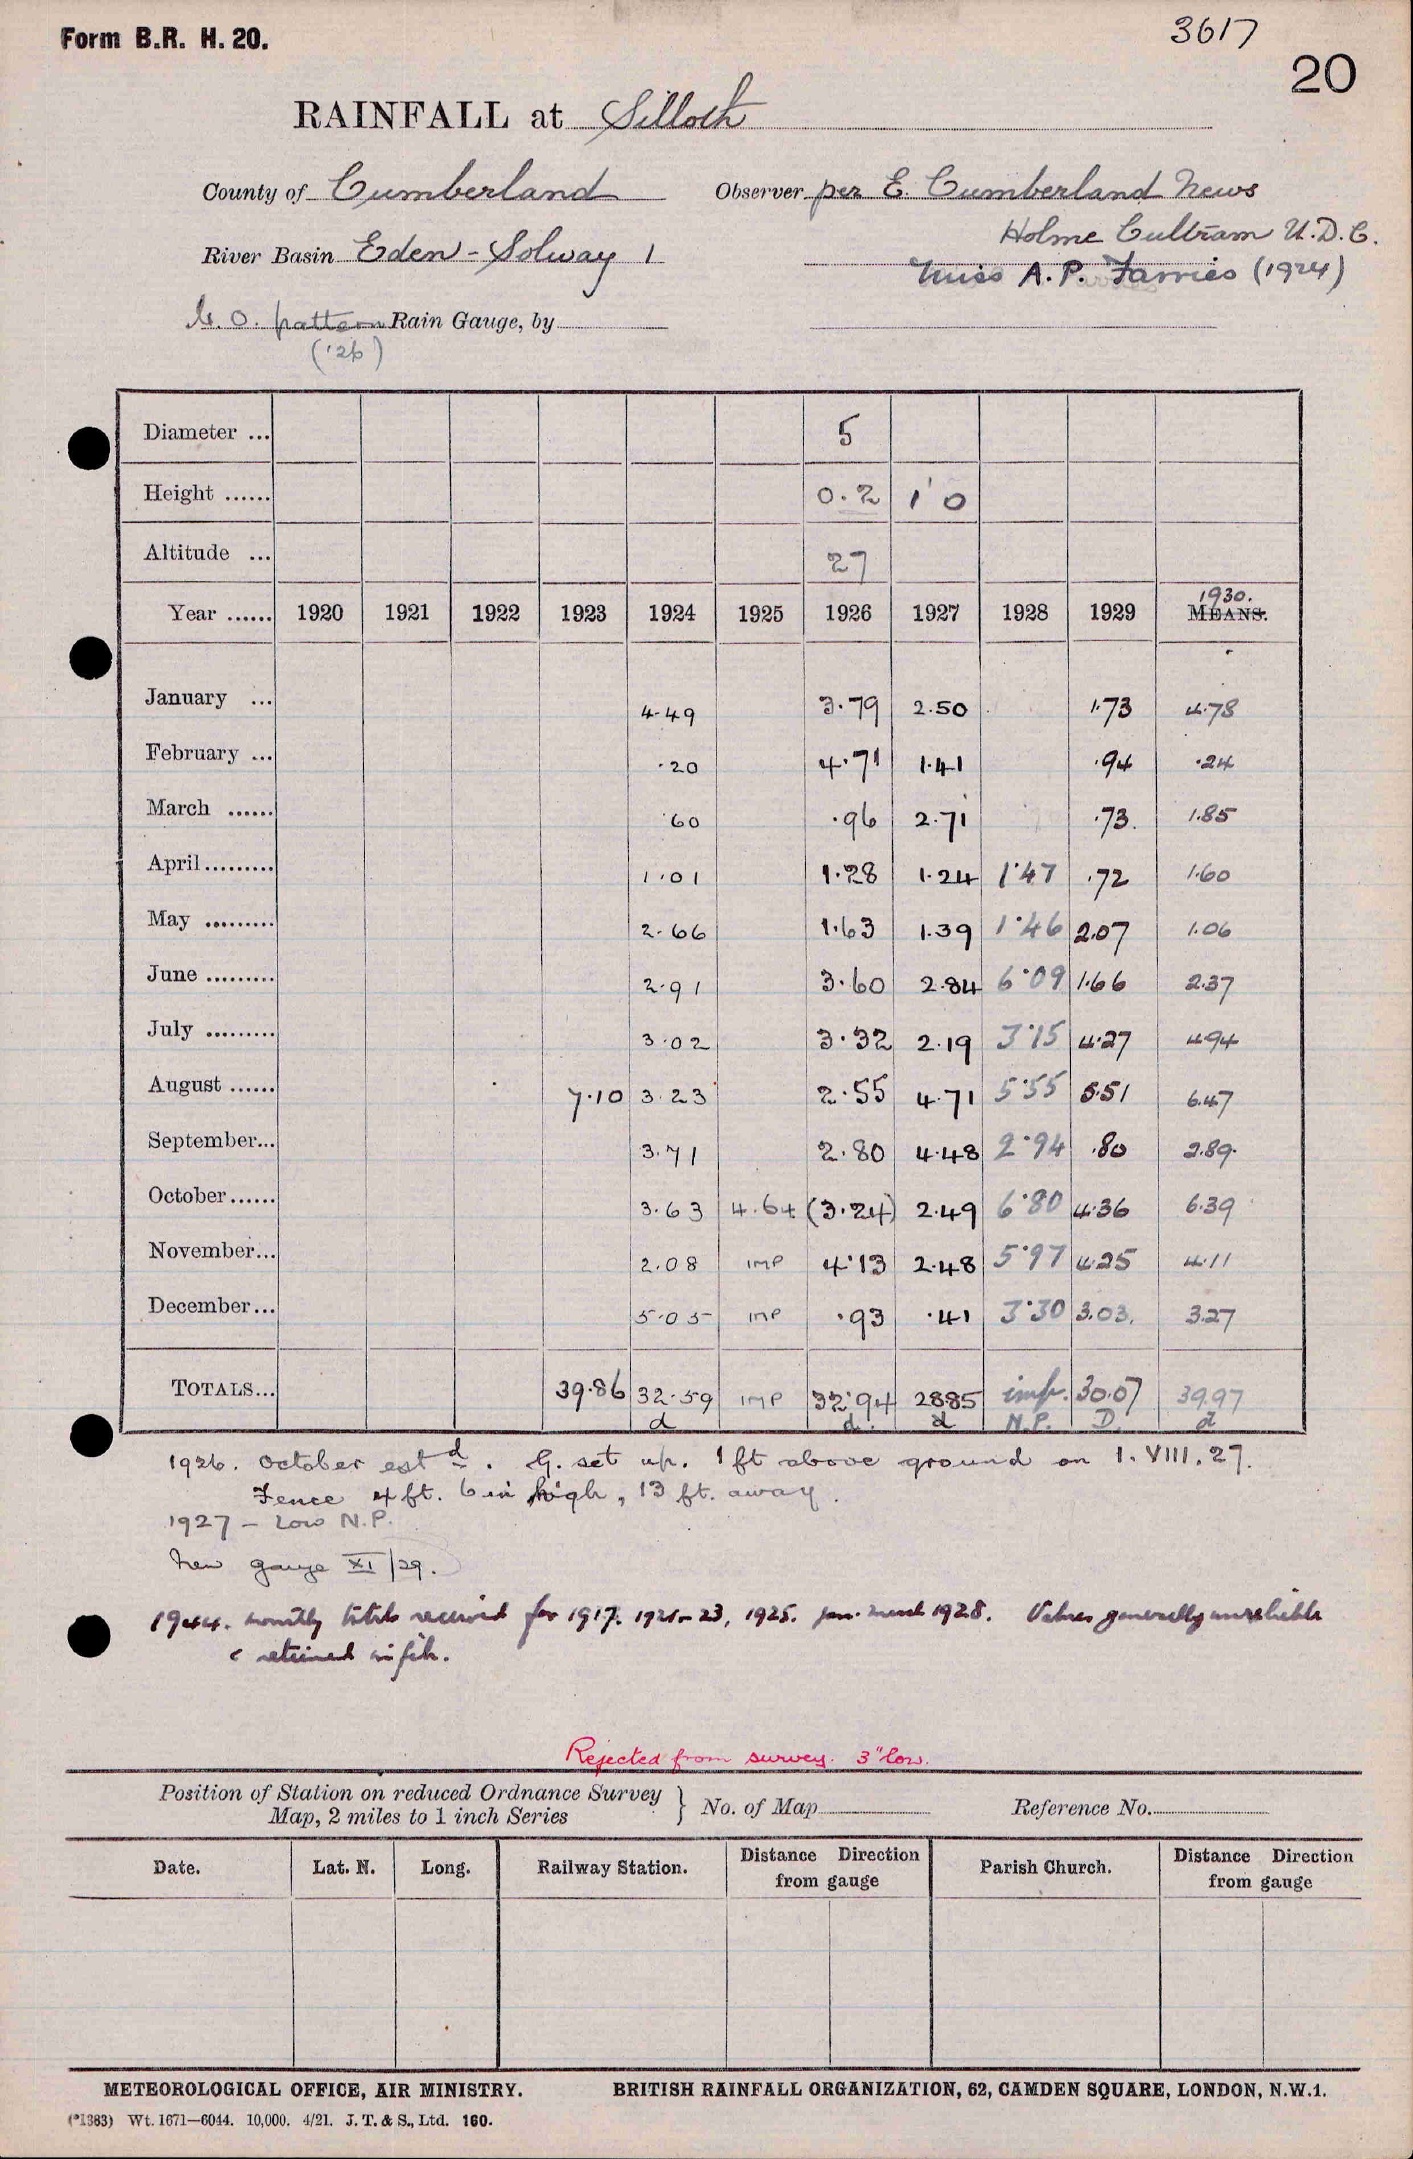 Form B.R. H. 20.
3617
20
RAINFALL at Silloth
County of Cumberland Observer per E. Cumberland News
Holme Cultram U.D.C.
River Basin Eden - Solway 1
Miss A. P. Farries (1924)
M.O. pattern Rain Gauge, by
('26)
Diameter ... 5
Height ...... 0.2 1' 0
Altitude ... 27
Year ...... 1920 1921 1922 1923 1924 1925 1926 1927 1928 1929 1930. MEANS.
January ... 4.49 3.79 2.50 1.73 4.78
February ... .20 4.71 1.41 .94 .24
March ...... .60 .96 2.71 .73 1.85
April......... 1.01 1.28 1.24 1.47 .72 1.60
May ......... 2.66 1.63 1.39 1.46 2.07 1.06
June ......... 2.91 3.60 2.84 6.09 1.66 2.37
July ......... 3.02 3.32 2.19 3.15 4.27 4.94
August ...... 7.10 3.23 2.55 4.71 5.55 5.51 6.47
September... 3.71 2.80 4.48 2.94 .80 2.89
October...... 3.63 4.64 (3.24) 2.49 6.80 4.36 6.39
November... 2.08 IMP 4.13 2.48 5.97 4.25 4.11
December... 5.05 IMP .93 .41 3.30 3.03 3.27
TOTALS... 39.86 32.59 IMP 32.94 28.85 imp. 30.07 39.97
d d. d N.P. D. d
1926. October estd. G. set up. 1 ft above ground on 1. VIII. 27.
Fence 4 ft. 6 in high, 13 ft. away.
1927 - Low N.P.
New gauge XI/29.
1944. monthly totals received for 1917. 1921-23, 1925. Jan. March 1928. Values generally unreliable
& retained in file.
Rejected from survey. 3" low.
Position of Station on reduced Ordnance Survey
Map, 2 miles to 1 inch Series } No. of Map Reference No.
Date. Lat. N. Long. Railway Station. Distance Direction from gauge Parish Church. Distance Direction from gauge
METEOROLOGICAL OFFICE, AIR MINISTRY. BRITISH RAINFALL ORGANIZATION, 62, CAMDEN SQUARE, LONDON, N.W.1.
(*1383) Wt. 1671—6044. 10,000. 4/21. J. T. & S., Ltd. 160.